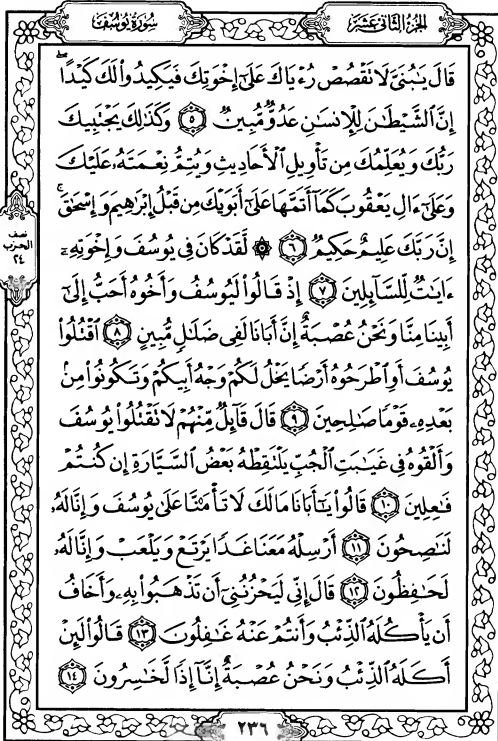 الجزء الثاني عشر
سورة يوسف
قَالَ يَٰبُنَىَّ لَا تَقۡصُصۡ رُءۡيَاكَ عَلَىٰٓ إِخۡوَتِكَ فَيَكِيدُواْ لَكَ كَيۡدًاۖ
إِنَّ ٱلشَّيۡطَٰنَ لِلۡإِنسَٰنِ عَدُوّٞ مُّبِينٞ ٥ وَكَذَٰلِكَ يَجۡتَبِيكَ
رَبُّكَ وَيُعَلِّمُكَ مِن تَأۡوِيلِ ٱلۡأَحَادِيثِ وَيُتِمُّ نِعۡمَتَهُۥ عَلَيۡكَ
وَعَلَىٰٓ ءَالِ يَعۡقُوبَ كَمَآ أَتَمَّهَا عَلَىٰٓ أَبَوَيۡكَ مِن قَبۡلُ إِبۡرَٰهِيمَ وَإِسۡحَٰقَۚ
إِنَّ رَبَّكَ عَلِيمٌ حَكِيمٞ ٦ ۞ لَّقَدۡ كَانَ فِي يُوسُفَ وَإِخۡوَتِهِۦٓ
ءَايَٰتٞ لِّلسَّآئِلِينَ ٧ إِذۡ قَالُواْ لَيُوسُفُ وَأَخُوهُ أَحَبُّ إِلَىٰٓ
أَبِينَا مِنَّا وَنَحۡنُ عُصۡبَةٌ إِنَّ أَبَانَا لَفِي ضَلَٰلٖ مُّبِينٍ ٨ ٱقۡتُلُواْ
يُوسُفَ أَوِ ٱطۡرَحُوهُ أَرۡضٗا يَخۡلُ لَكُمۡ وَجۡهُ أَبِيكُمۡ وَتَكُونُواْ مِنۢ
بَعۡدِهِۦ قَوۡمٗا صَٰلِحِينَ ٩ قَالَ قَآئِلٞ مِّنۡهُمۡ لَا تَقۡتُلُواْ يُوسُفَ
وَأَلۡقُوهُ فِي غَيَٰبَتِ ٱلۡجُبِّ يَلۡتَقِطۡهُ بَعۡضُ ٱلسَّيَّارَةِ إِن كُنتُمۡ
فَٰعِلِينَ ١٠ قَالُواْ يَٰٓأَبَانَا مَالَكَ لَا تَأۡمَ۬نَّا عَلَىٰ يُوسُفَ وَإِنَّا لَهُۥ
لَنَٰصِحُونَ ١١ أَرۡسِلۡهُ مَعَنَا غَدٗا يَرۡتَعۡ وَيَلۡعَبۡ وَإِنَّا لَهُۥ
لَحَٰفِظُونَ ١٢ قَالَ إِنِّي لَيَحۡزُنُنِيٓ أَن تَذۡهَبُواْ بِهِۦ وَأَخَافُ
أَن يَأۡكُلَهُ ٱلذِّئۡبُ وَأَنتُمۡ عَنۡهُ غَٰفِلُونَ ١٣ قَالُواْ لَئِنۡ
أَكَلَهُ ٱلذِّئۡبُ وَنَحۡنُ عُصۡبَةٌ إِنَّآ إِذٗا لَّخَٰسِرُونَ ١٤
نصف
الحزب
٢٤
٢٣٦